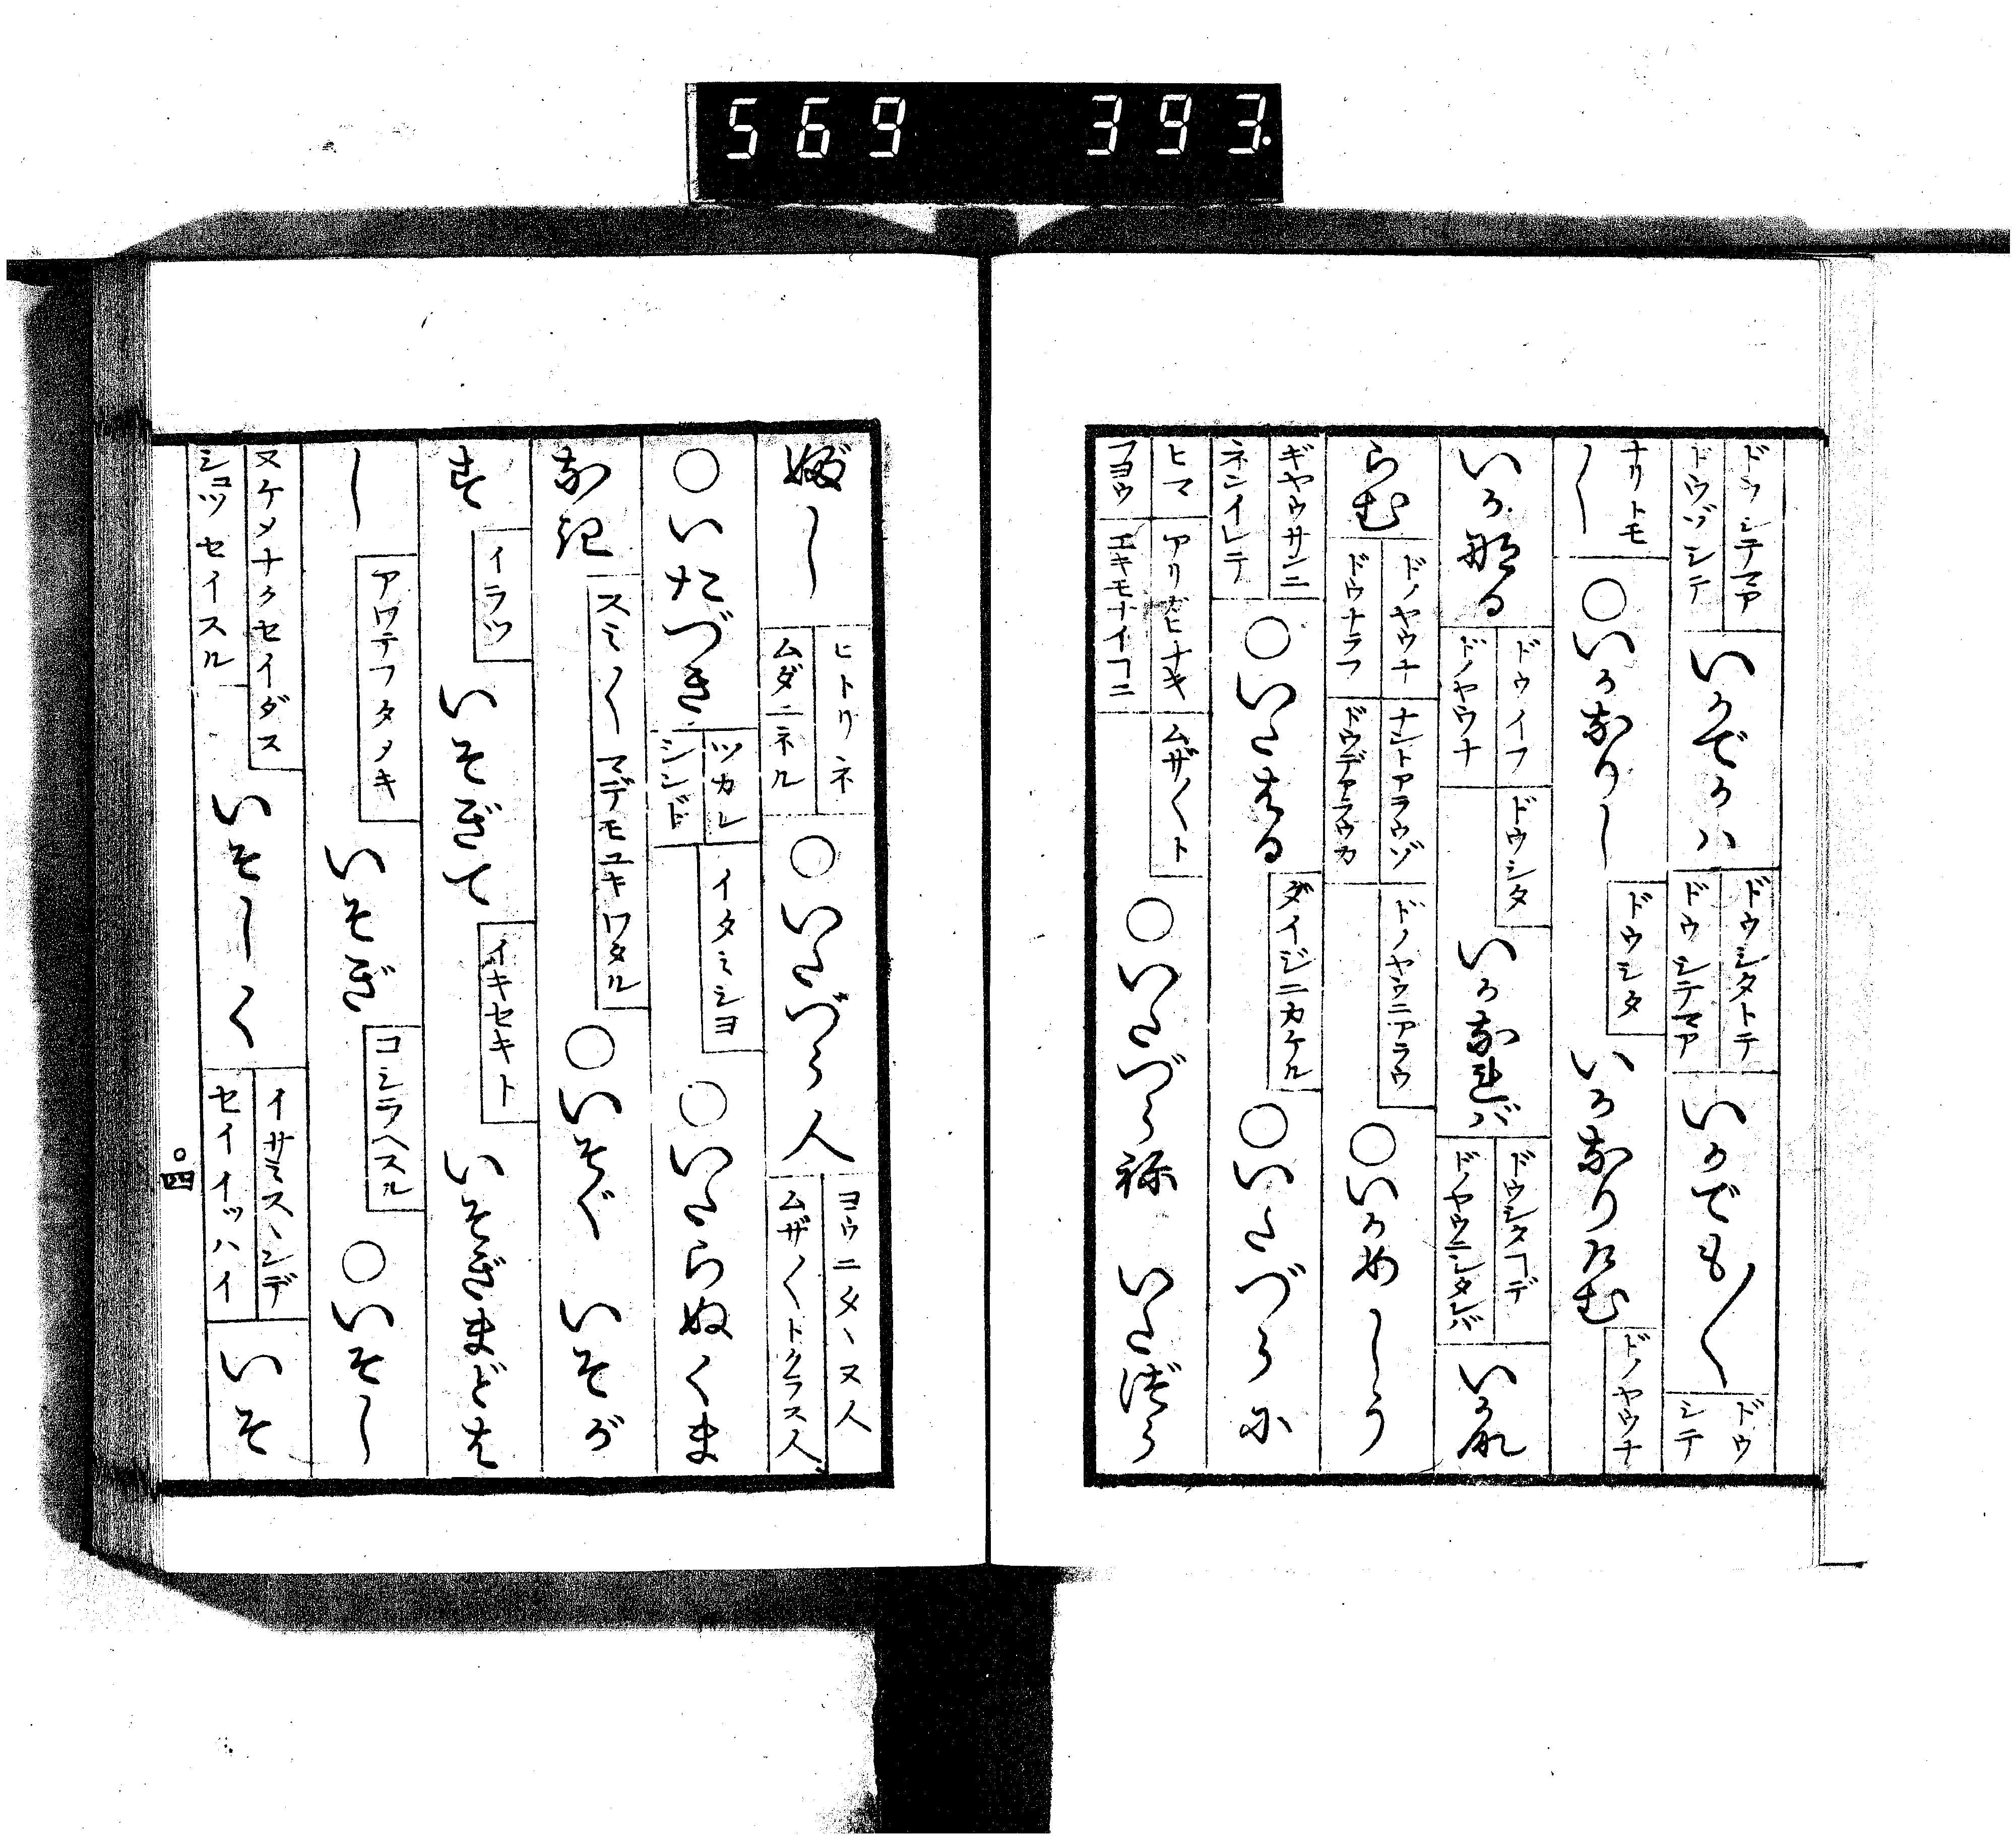 569 393.
ドウシテマア ドウゾシテ いかでかハ ドウシタトテ ドウシテマア いかでも〱 ドウシテ
ナリトモ し ○いかなりし ドウシタ いかなりけむ ドノヤウナ
いかなる ドウイフ ドノヤウナ ドウシタ いかなれバ ドウシタコデ ドノヤウニシタレバ いかな
らむ ドノヤウナ ドウナラフ ナントアラウゾ ドウデアラウカ ドノヤウニアラウ ○いかめしう
ギヤウサンニ ネンイレテ ○いたはる ダイジニカケル ○いたづらに
ヒマ フヨウ アリガヒナキ エキモナイコニ ムザ〱ト ○いたづら祢 いたづら
ぶし ヒトリネ ムダニネル ○いたづら人 ヨウニタヽヌ人 ムザ〱トクラス人
○いたづき ツカレ シンド イタミシヨ ○いたらぬくま
なき スミ〱マデモユキワタル ○いそぐ いそが
す イラツ いそぎて イキセキト いそぎまどは
し アワテフタメキ いそぎ コシラヘスル ○いそし
ヌケメナクセイダス ショッセイスル いそしく イサミスヽンデ セイイッハイ いそ
○四